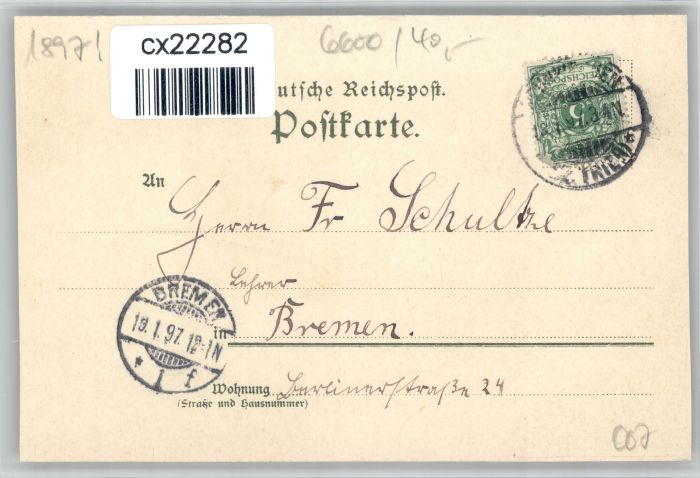 1897!
cx22282
6600/40,-
utsche Reichspost.
Postkarte.
REICHSPOST
5
An
Herrn Fr Schultze
Lehrer
in
Bremen.
BREMEN
19.1.97.12-1N
* 1 f
Wohnung Berlinerstraße 24
(Straße und Hausnummer)
007